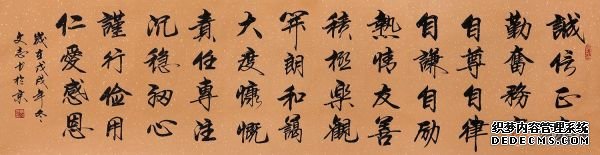 誠信正
勤奮務
自尊自律
自謙自励
熱情友善
積極樂觀
開朗和藹
大度慷慨
責任專注
沉穩細心
謹行儉用
仁愛感恩
歲在戊戌年冬
文志书於京
织梦内容管理系统
DEDECMS.COM